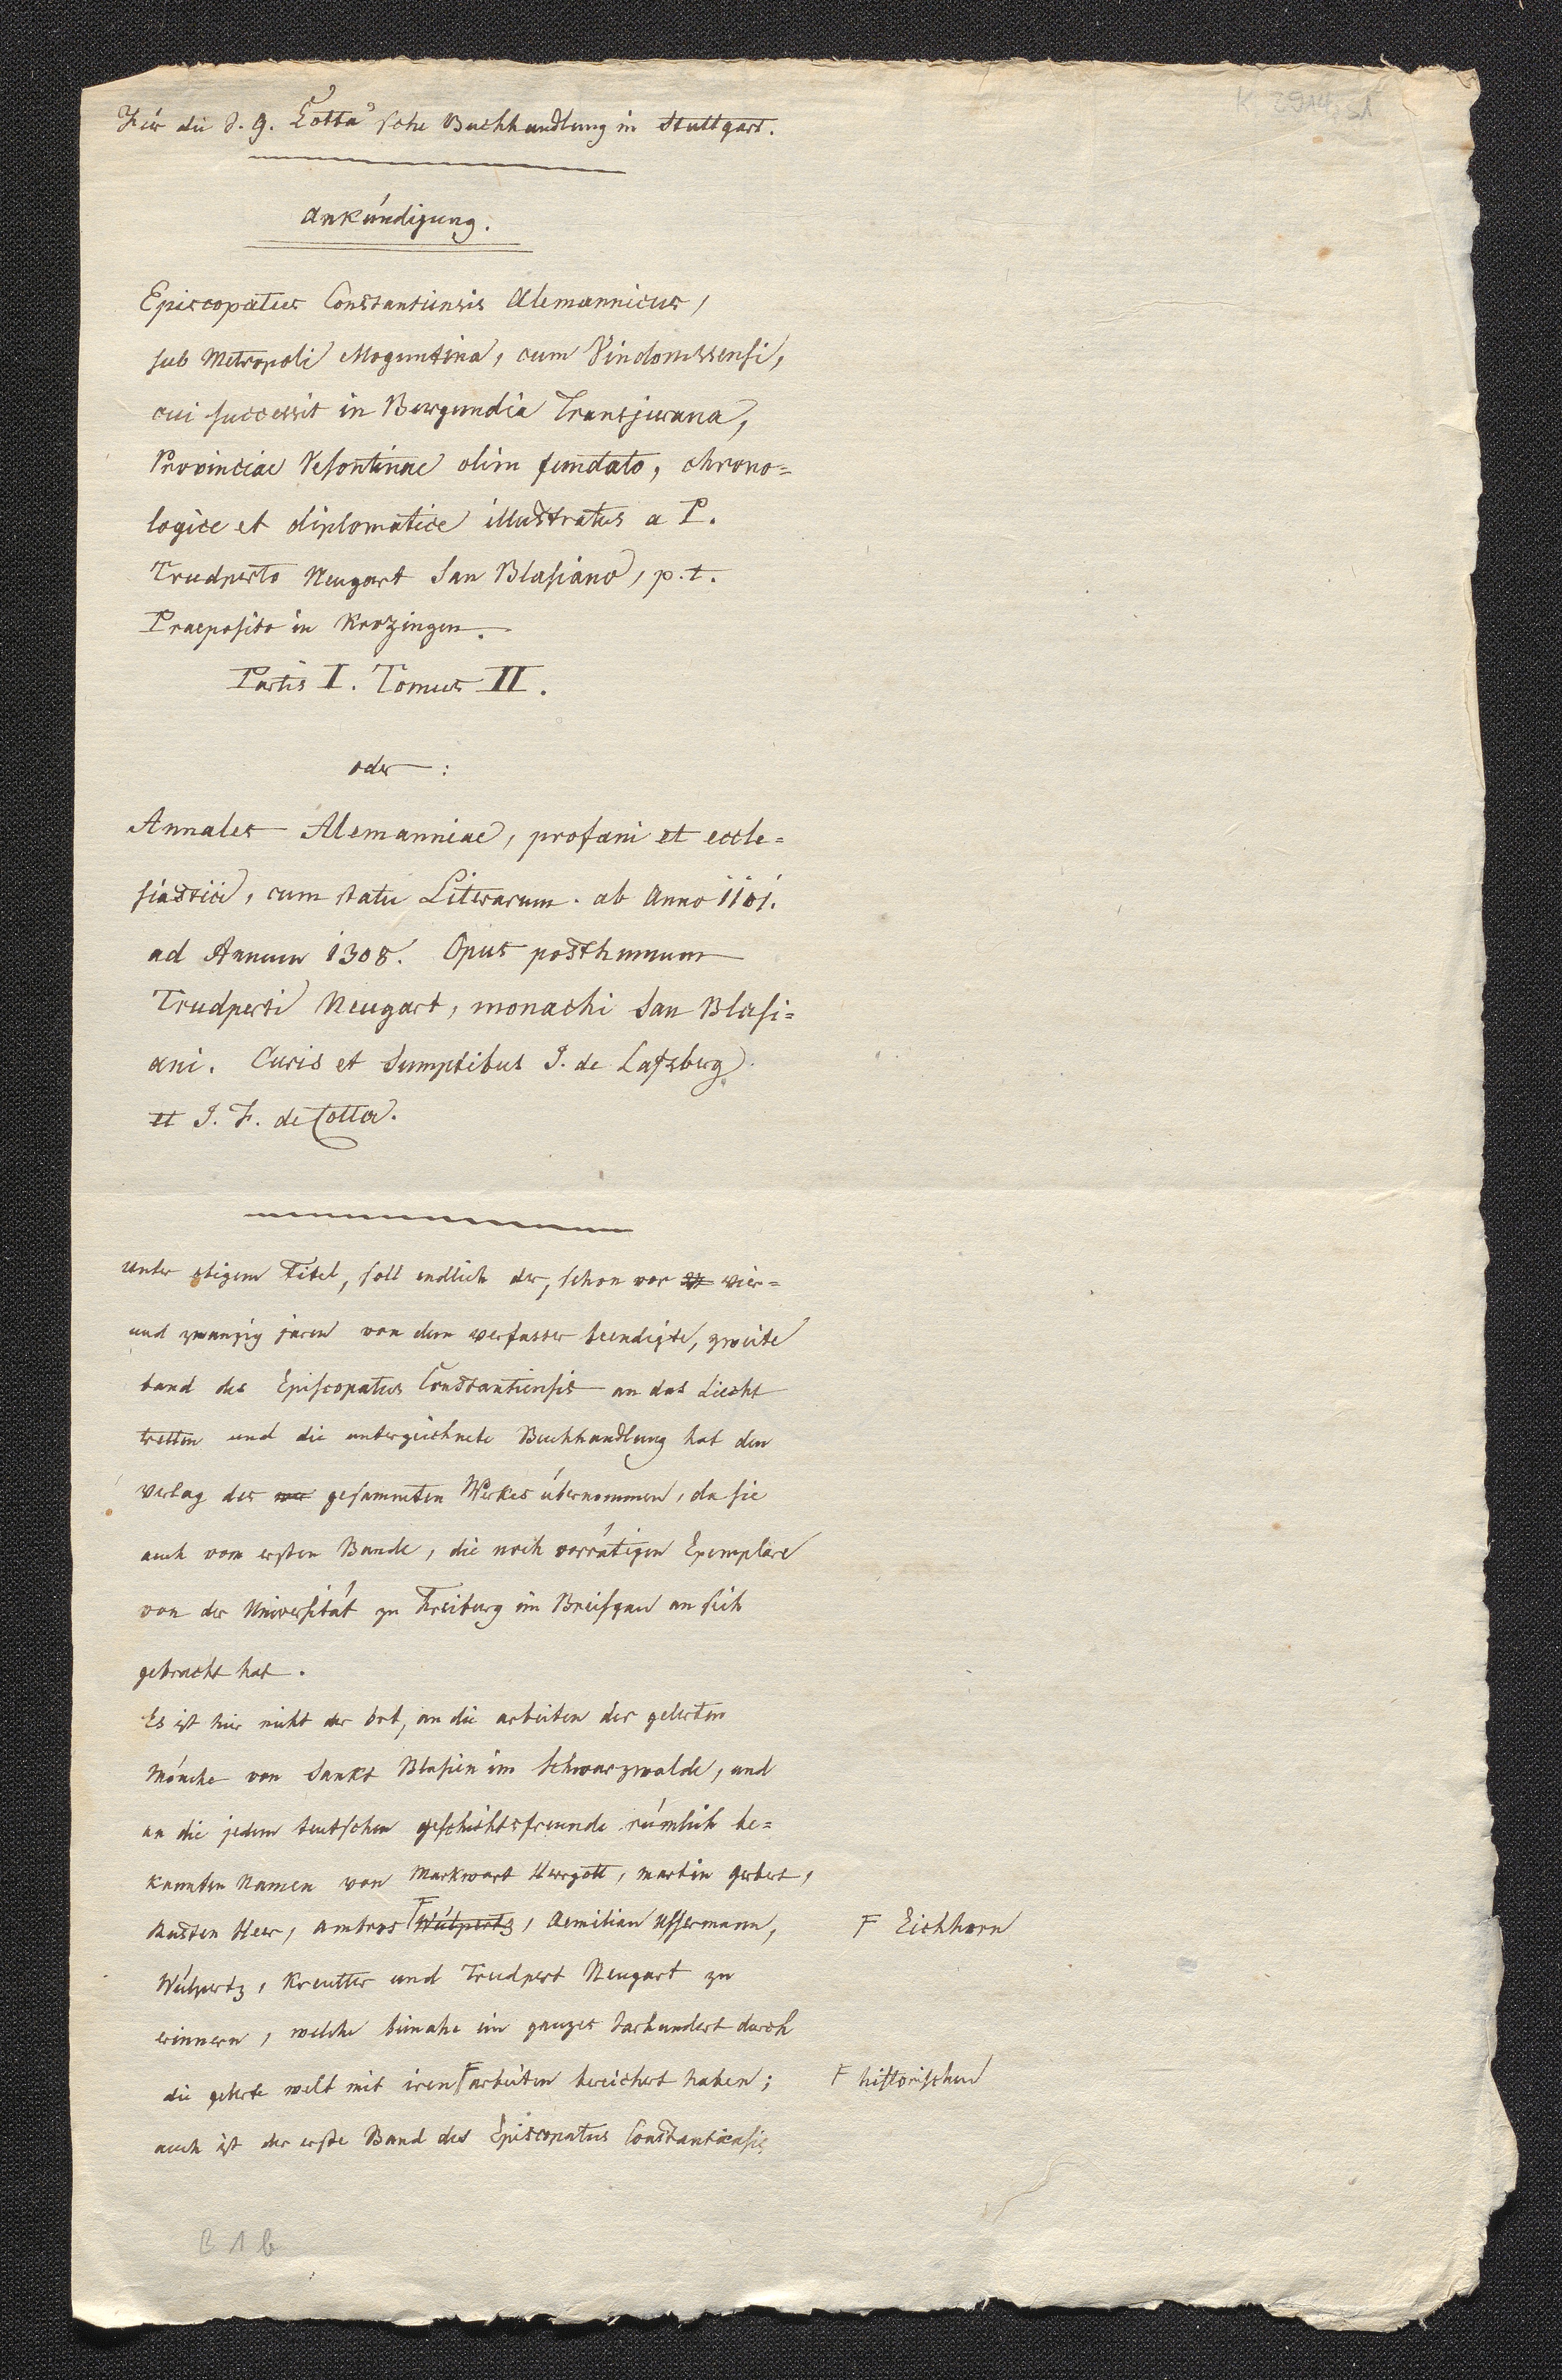 K 2914, 51
Für die J. G. Cotta'sche Buchhandlung in Stuttgart.
Ankúndigung.
Episcopatus Constantiensis Alemannicus,
sub Metropoli Moguntina, cum Vindonissensi,
cui successit in Burgundia Transjurana,
Provinciae Vesontinae olim fundato, chrono=
logice et diplomatice illustratus a P.
Trudperto Neugart San Blasiano, p. t.
Praeposito in Krozingen.
Partis I. Tomus II.
oder:
Annales Alemanniae, profani et eccle=
siastici, cum statu Literarum. ab Anno 1101.
ad Annum 1308. Opus posthumum
Trudperti Neugart, monachi San Blasi=
ani. Curis et Sumptibus J. de Laszberg
et J. F. de Cotta.
Unter obigem Titel, soll endlich der, schon vor vier=
und zwanzig jaren von dem verfasser beendigte, zweite
band des Episcopatus Constantiensis an das Liecht
tretten und die unterzeichnete Buchhandlung hat den
verlag des gesammten Werkes úbernommen, da sie
auch vom ersten Bande, die noch vorrátigen Exemplare
von der Universitát zu Freiburg im Breisgau an sich
gebracht hat.
Es ist hier nicht der Ort, an die arbeiten der gelerten
Mónche von Sankt Blasien im Schwarzwalde, und
an die jedem teutschen geschichtsfreunde rúmlich be=
kannten Namen von Markwart Herrgott, Martin Gerbert,
Rusten Heer, Ambros F Wúlpertz, Aemilian Ussermann,
F Eichhorn
Wúlpertz, Kreutter und Trudpert Neugart zu
erinnern, welche beinahe ein ganzes Jarhundert durch
die gelerte welt mit iren F arbeiten bereichert haben;
F historischen
auch ist der erste Band des Episcopatus Constantiensis
B 1 b